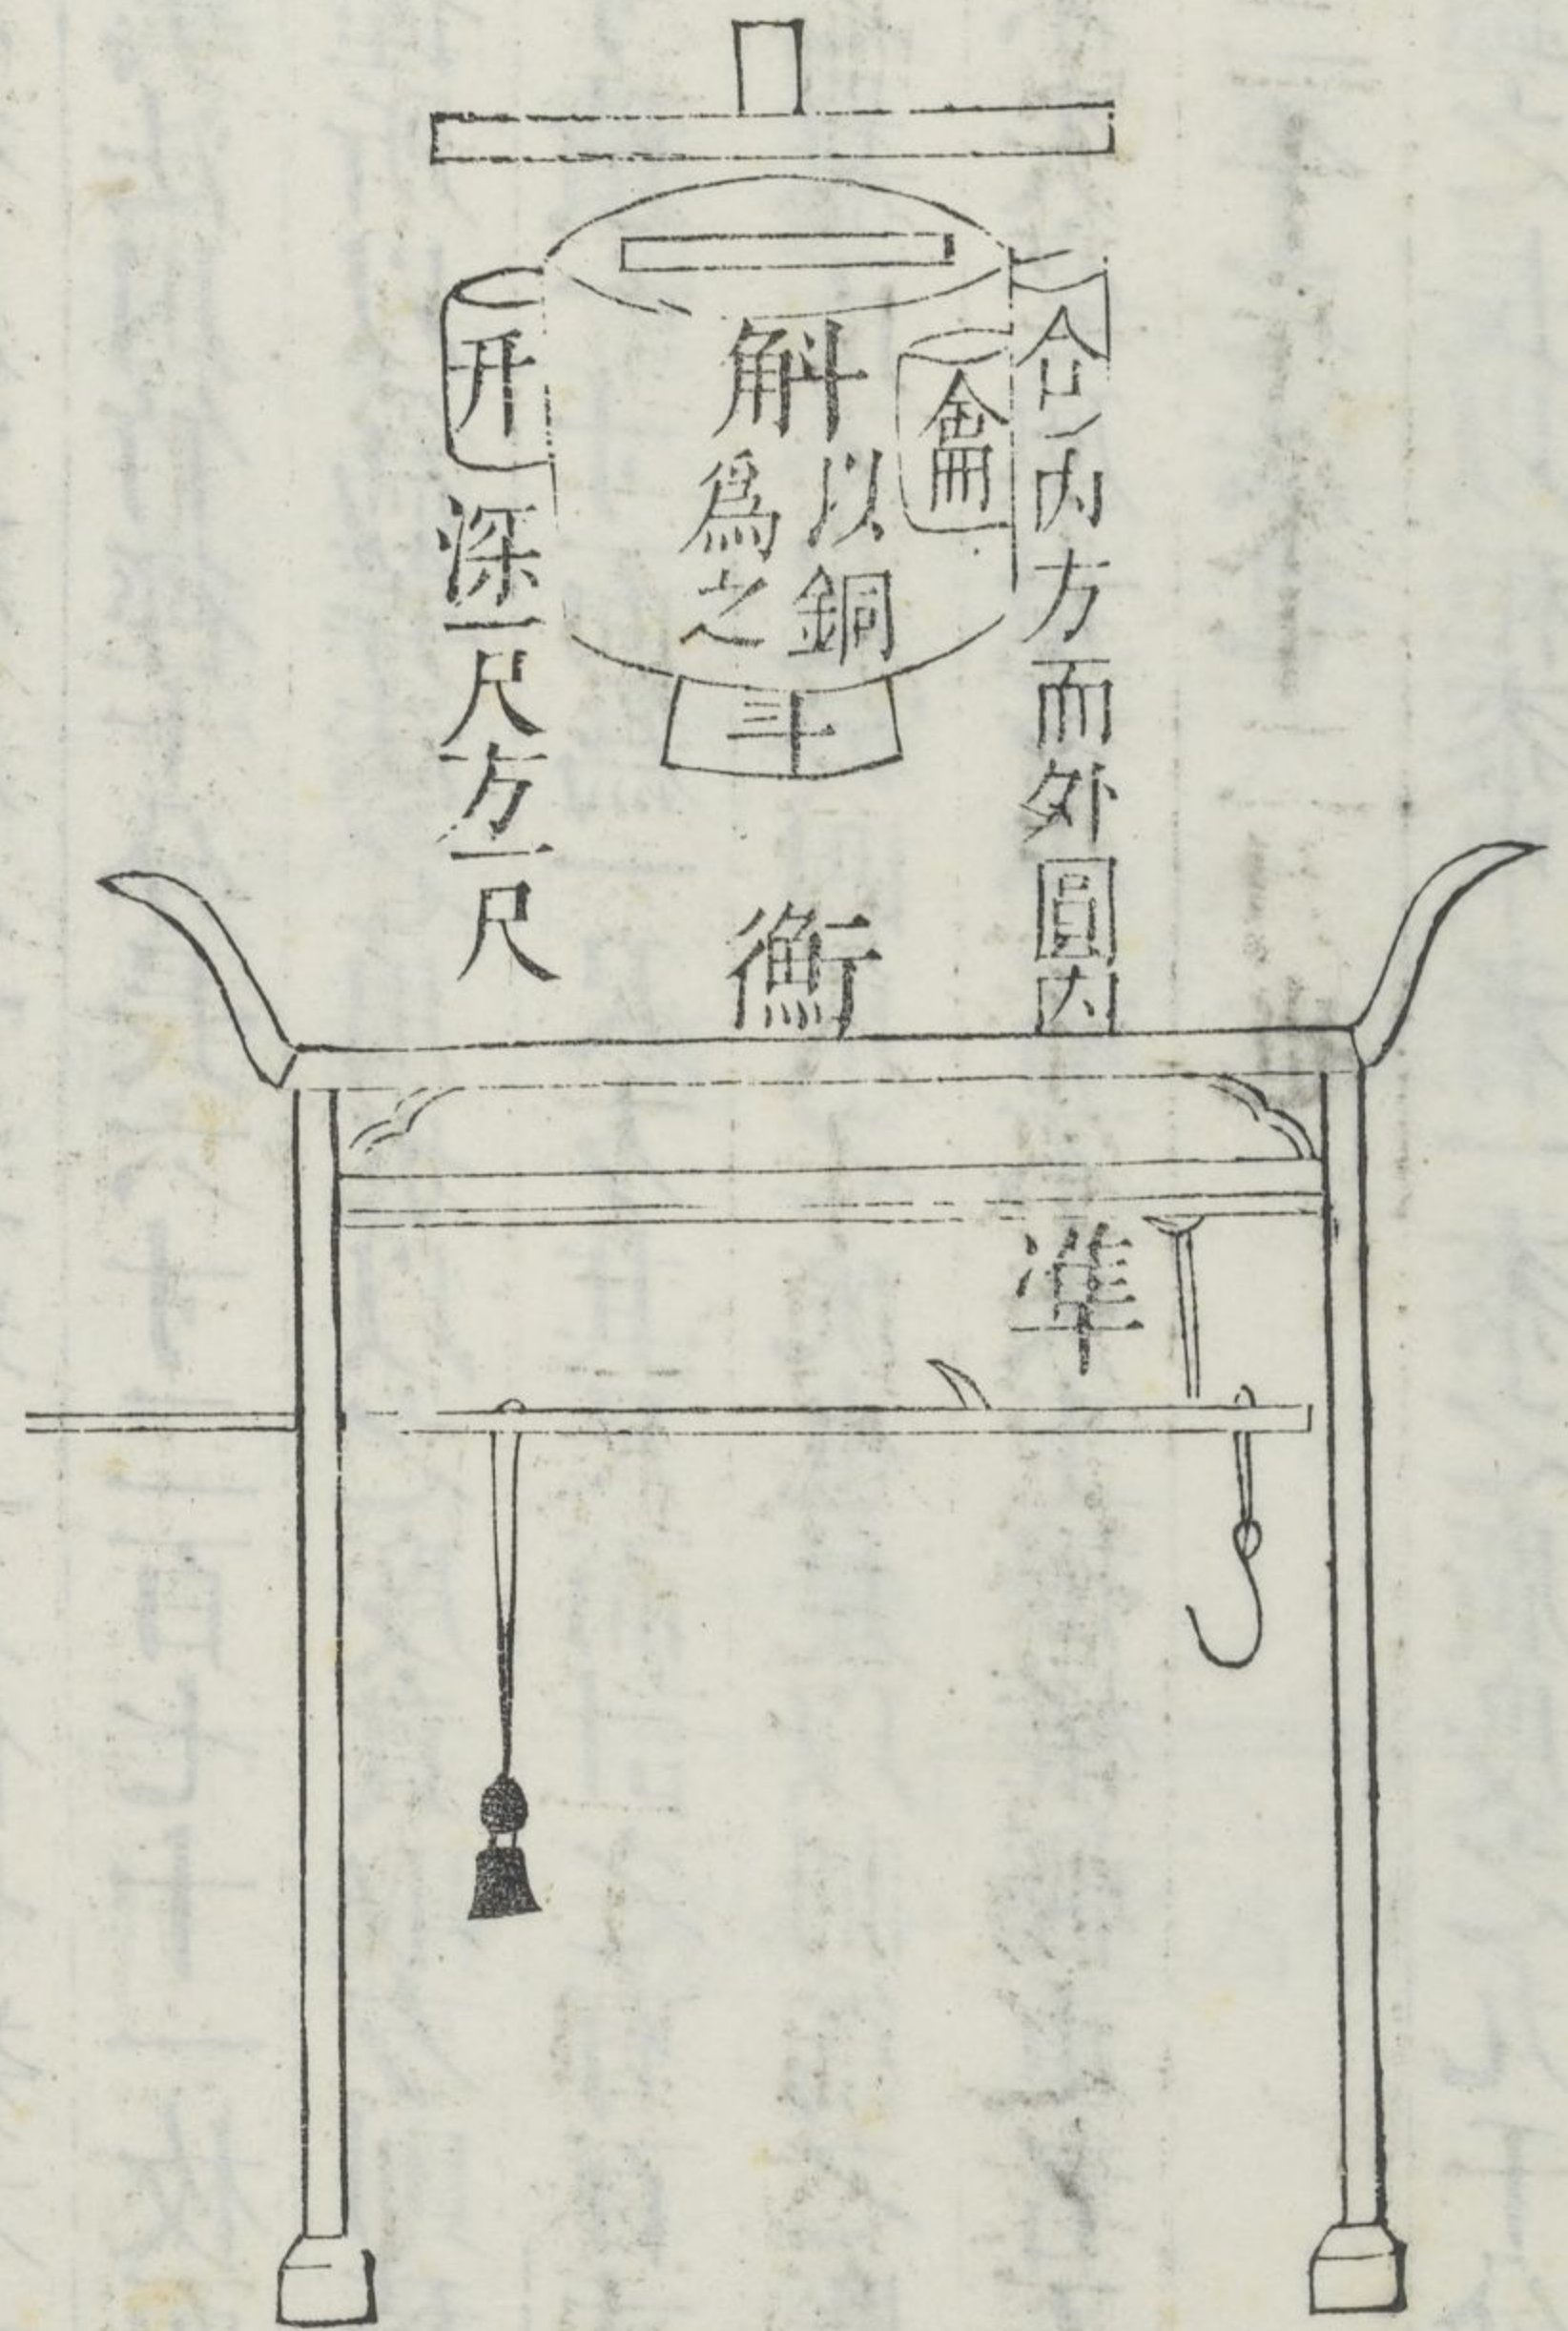 合
內方而外圓內
龠
斛
以銅
爲之
斗
升
深一尺方一尺
衡
準